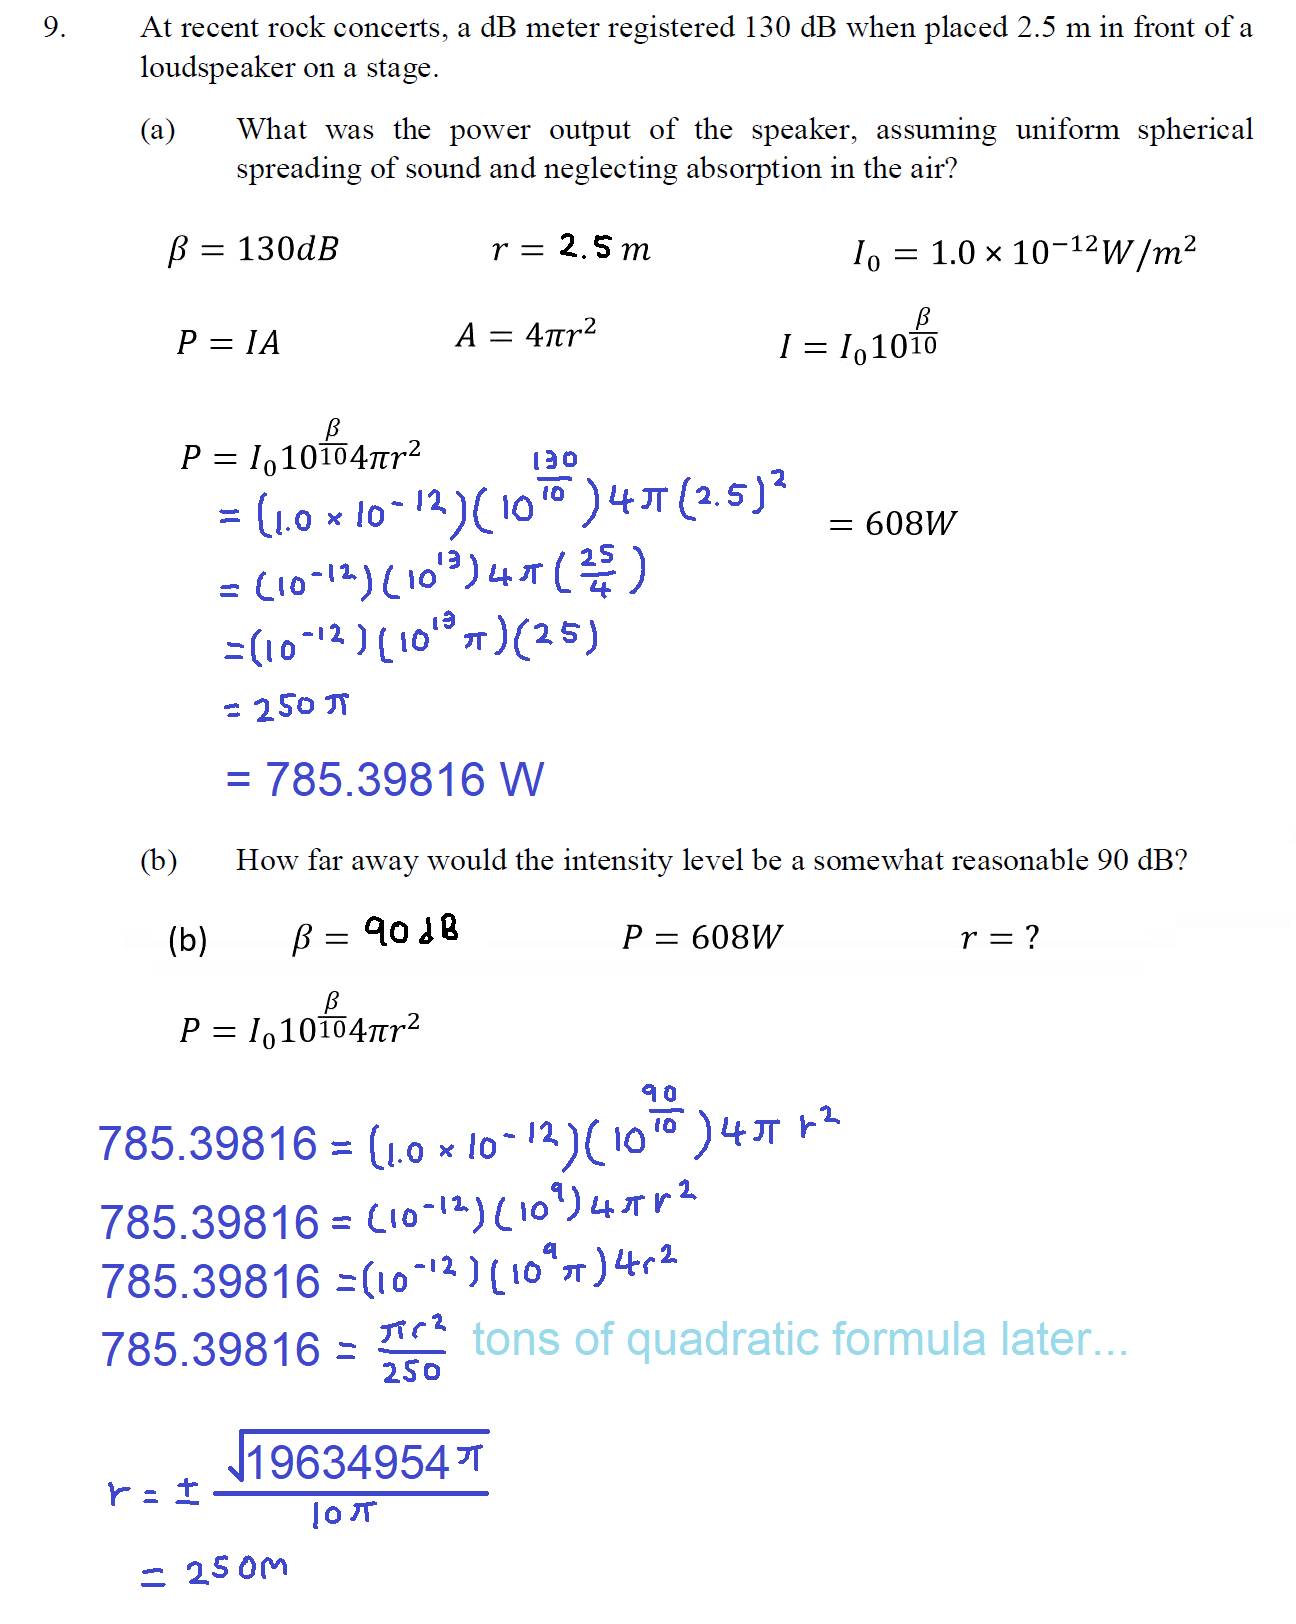 9. At recent rock concerts, a dB meter registered 130 dB when placed 2.5 m in front of a
loudspeaker on a stage.
(a) What was the power output of the speaker, assuming uniform spherical
spreading of sound and neglecting absorption in the air?
β = 130dB r = 2.5 m I₀ = 1.0 × 10⁻¹²W/m²
P = IA A = 4πr² I = I₀10^(β/10)
P = I₀10^(β/10)4πr²
= (1.0 × 10⁻¹²)(10^(130/10))4π(2.5)² = 608W
= (10⁻¹²)(10¹³)4π(25/4)
=(10⁻¹²)(10¹³π)(25)
= 250π
= 785.39816 W
(b) How far away would the intensity level be a somewhat reasonable 90 dB?
(b) β = 90dB P = 608W r = ?
P = I₀10^(β/10)4πr²
785.39816 = (1.0 × 10⁻¹²)(10^(90/10))4πr²
785.39816 = (10⁻¹²)(10⁹)4πr²
785.39816 =(10⁻¹²)(10⁹π)4r²
785.39816 = πr²/250 tons of quadratic formula later...
r = ± √19634954π/10π
= 250m